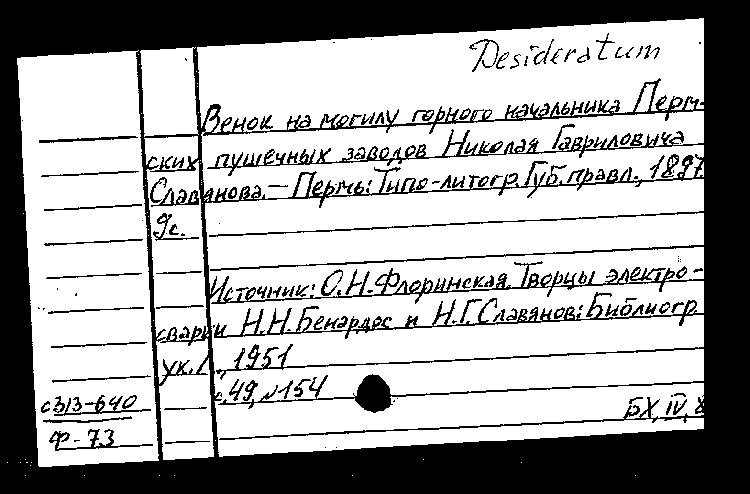 Desideratum
Венок на могилу горного начальника Перм-
ских пушечных заводов Николая Гавриловича
Славянова. — Пермь: Типо-литогр. Губ. правл., 1897
9с.
Источник: О.Н. Флоринская. Творцы электро-
сварки Н.Н. Бенардос и Н.Г. Славянов: Библиогр.
ук. Л., 1951
с. 49, №154
с313-640
Ф-73
БХ, IV,